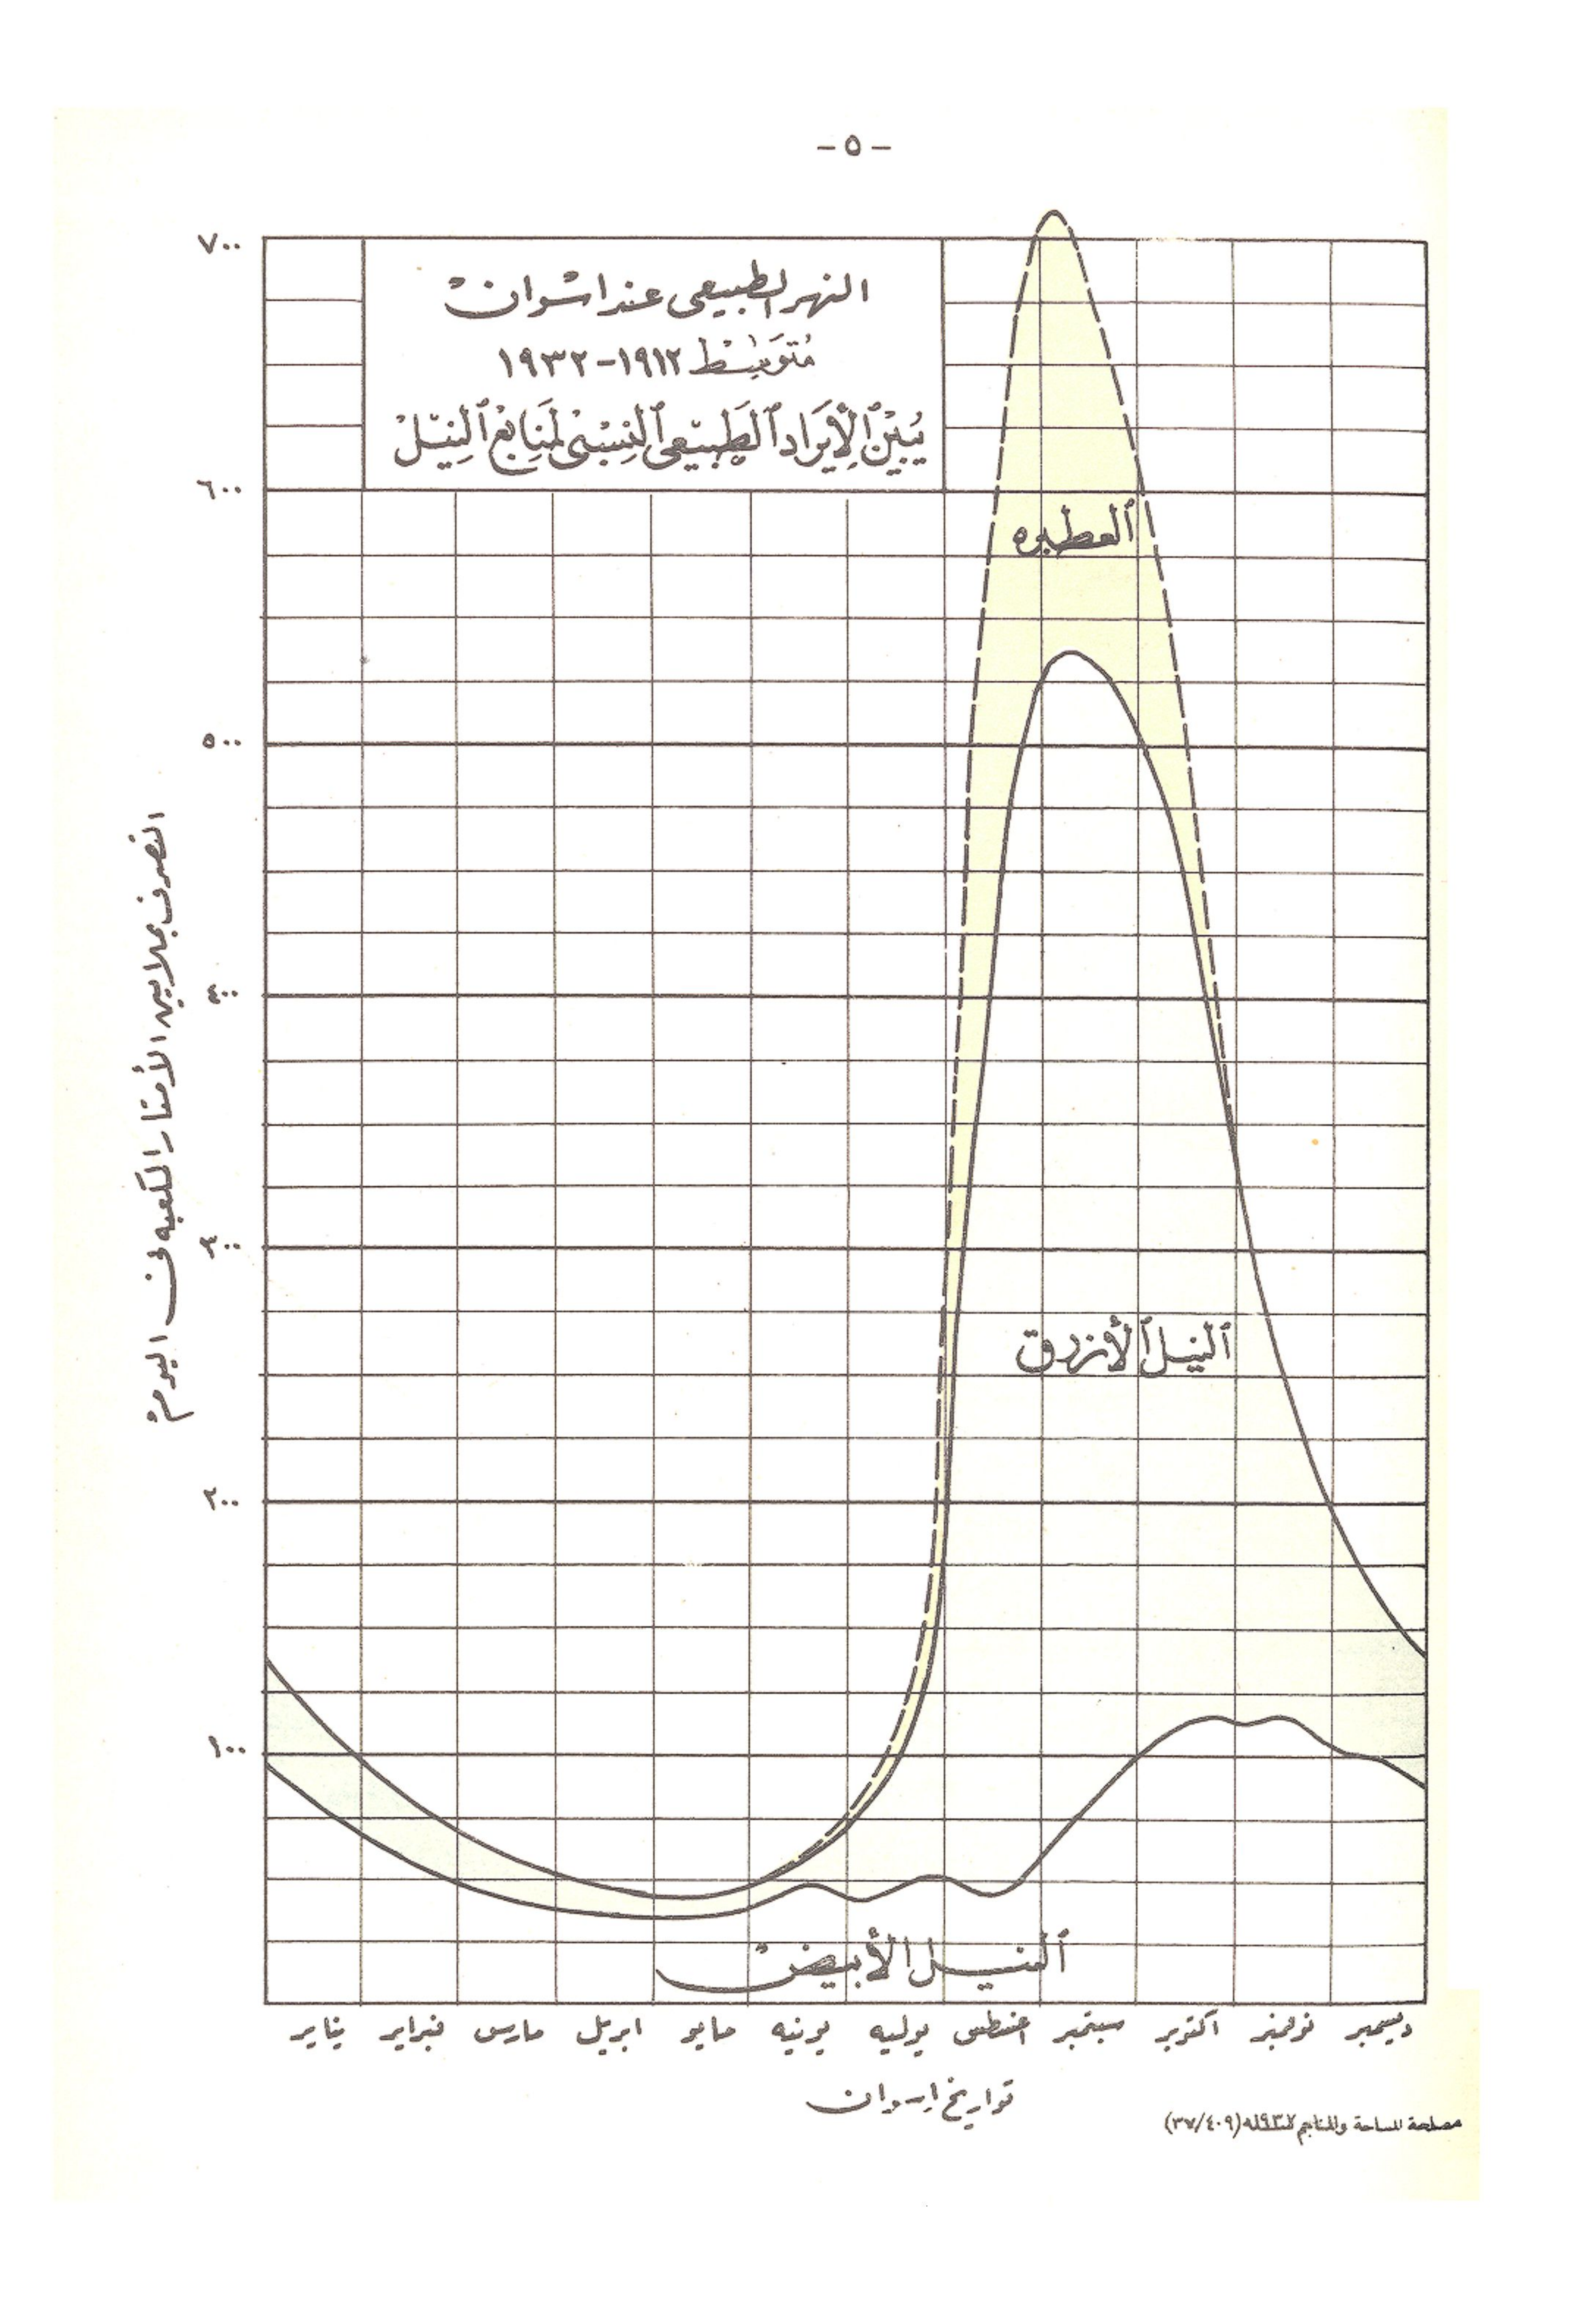 - ٥ -
النهر الطبيعى عند اسوان
مُتوَسِط ١٩١٢-١٩٣٢
يُبَيّنْ الإيَراد الطَبيَعى النِسْبىْ لمَنَابِعْ النِيّلْ
٧٠٠
٦٠٠
٥٠٠
٤٠٠
٣٠٠
٢٠٠
١٠٠
التصرف بملايين الأمتار المكعبه فى اليوم
العطبره
النيل الأزرق
النيل الأبيض
يناير فبراير مارس ابريل مايو يونيه يوليه اغسطس سبتمبر اكتوبر نوفمبر ديسمبر
تواريخ اسوان
مصلحة المساحة والمناجم (٣٧/٤٠٩)